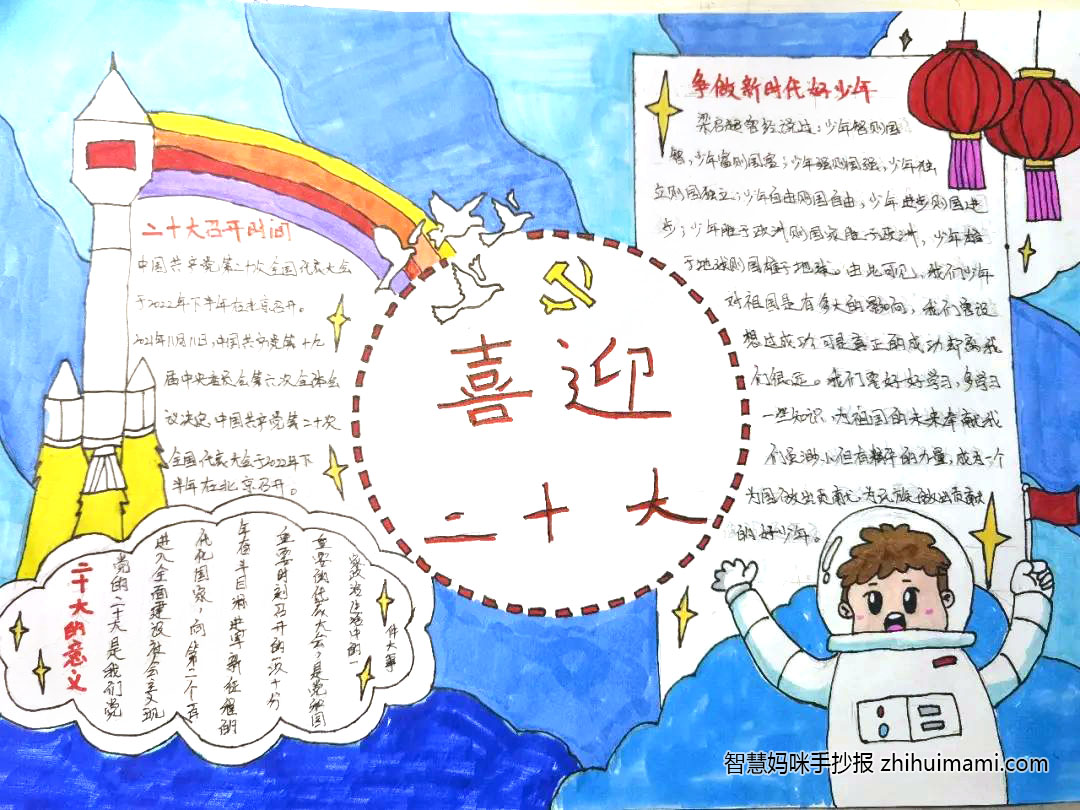 喜迎
二十大
二十大召开时间
中国共产党第二十次全国代表大会
于2022年下半年在北京召开。
2021年11月11日,中国共产党第十九
届中央委员会第六次全体会
议决定,中国共产党第二十次
全国代表大会于2022年下
半年在北京召开。
二十大的意义
党的二十大是我们党
进入全面建设社会主义现
代化国家,向第二个百
年奋斗目标进军新征程的
重要时刻召开的一次十分
重要的代表大会,是党和国
家政治生活中的一
件大事
争做新时代好少年
梁启超曾经说过:少年智则国
智,少年富则国富;少年强则国强,少年独
立则国独立;少年自由则国自由,少年进步则国进
步;少年胜于欧洲则国家胜于欧洲,少年雄
于地球则国雄于地球。由此可见,我们少年
对祖国是有多大的影响,我们曾设
想过成功可是真正的成功却离我
们很远。我们要好好学习,多学习
一些知识,为祖国的未来奉献我
们虽渺小但有精华的力量,成为一个
为国做出贡献,为民族做出贡献
的好少年。
智慧妈咪手抄报 zhihuimami.com